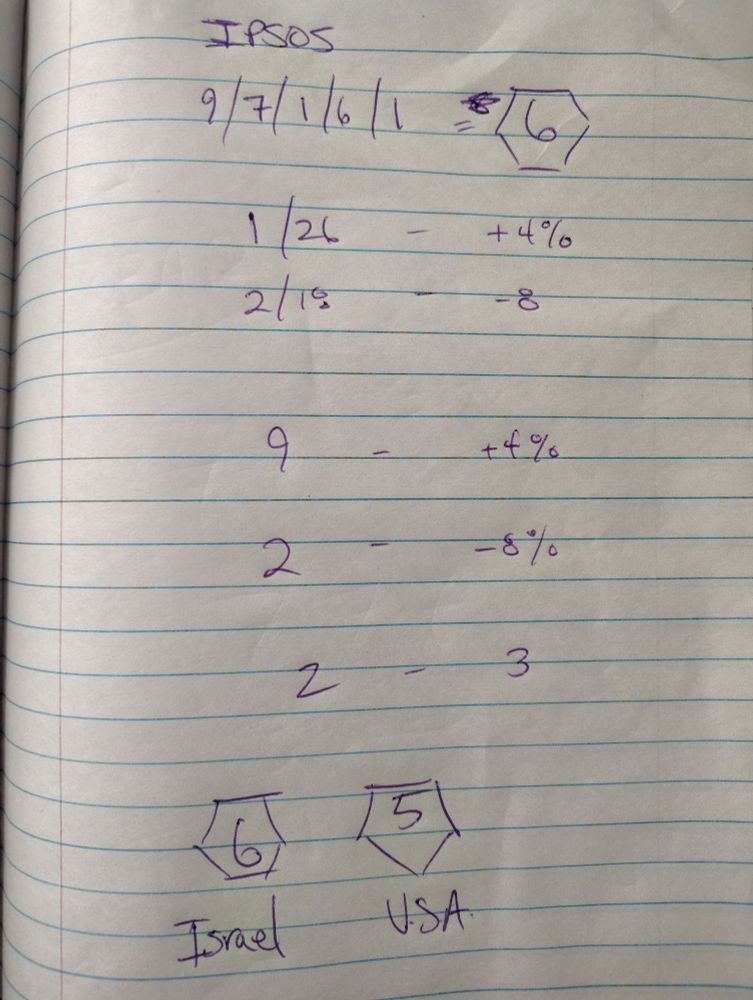 IPSOS
9/7/1/6/1 = 6
1/26 - +4%
2/18 - -8
9 - +4%
2 - -8%
2 - 3
6 5
Israel U.S.A.